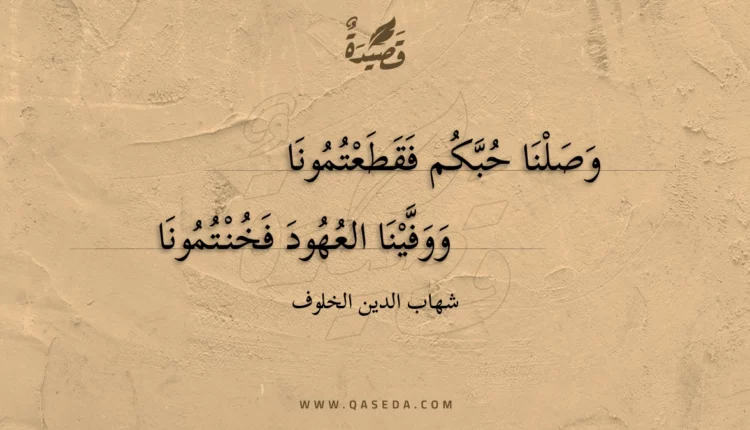 قَصِيدَةٌ
وَصَلْنَا حُبَّكُم فَقَطَعْتُمُونَا
وَوَفَّيْنَا العُهُودَ فَخُنْتُمُونَا
شهاب الدين الخلوف
WWW.QASEDA.COM